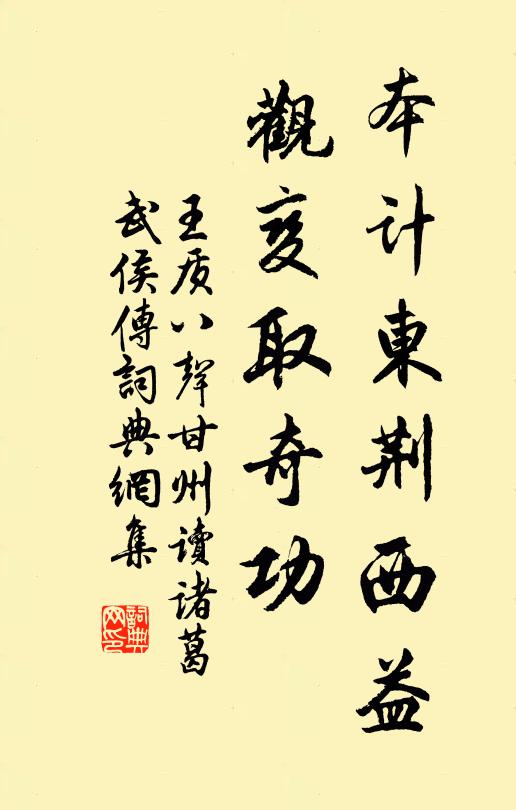 本计東荆西益
觀变取奇功
王质八聲甘州讀諸葛
武侯傳詞典網集
詞典
网印